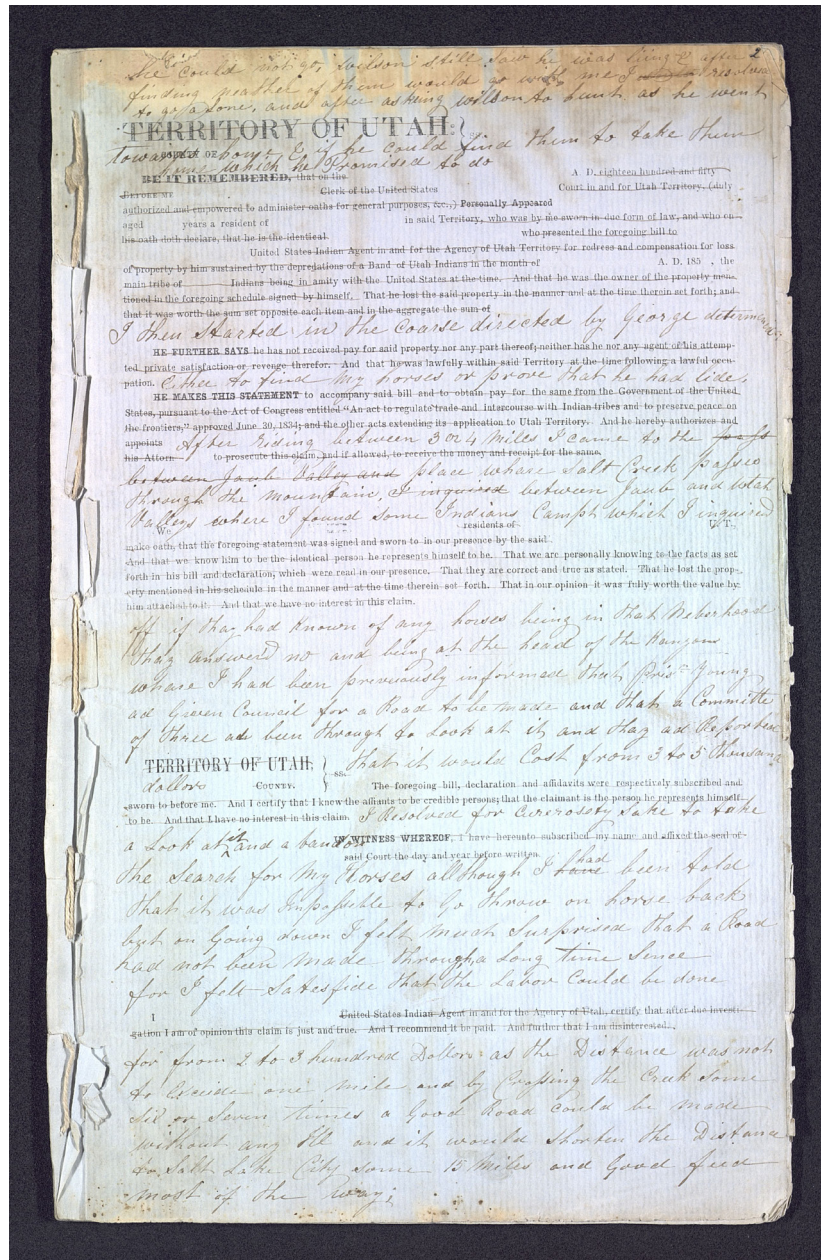 2
he could not go, wilson still saw he was lieing & after
finding neather of them would go with me I resolved
to go a lone, and after asking wilson to hunt as he went
TERRITORY OF UTAH: } ss.
towards home & if he could find them to take them
COUNTY OF
home which he Promised to do
BE IT REMEMBERED, that on the A. D. eighteen hundred and fifty
BEFORE ME Clerk of the United States Court in and for Utah Territory, (duly
authorized and empowered to administer oaths for general purposes, &c.,) Personally Appeared
aged years a resident of in said Territory, who was by me sworn in due form of law, and who on
his oath doth declare, that he is the identical who presented the foregoing bill to
United States Indian Agent in and for the Agency of Utah Territory for redress and compensation for loss
of property by him sustained by the depredations of a Band of Utah Indians in the month of A. D. 185 , the
main tribe of Indians being in amity with the United States at the time. And that he was the owner of the property men-
tioned in the foregoing schedule signed by himself. That he lost the said property in the manner and at the time therein set forth; and
that it was worth the sum set opposite each item and in the aggregate the sum of
I then started in the coarse directed by George determined
HE FURTHER SAYS he has not received pay for said property nor any part thereof; neither has he nor any agent of his attemp-
ted private satisfaction or revenge therefor. And that he was lawfully within said Territory at the time following a lawful occu-
pation. Either to find my horses or prove that he had lide,
HE MAKES THIS STATEMENT to accompany said bill and to obtain pay for the same from the Government of the United
States, pursuant to the Act of Congress entitled "An act to regulate trade and intercourse with Indian tribes and to preserve peace on
the frontiers," approved June 30, 1834; and the other acts extending its application to Utah Territory. And he hereby authorizes and
appoints After Riding between 3 or 4 Miles I came to the
his Attorn to prosecute this claim, and if allowed, to receive the money and receipt for the same.
between Juab Valley and place whare Salt Creek passes
through the mountain, I inquired between Juab and Utah
Valleys where I found some Indians Campt which I inquired
We residents of U. T.,
make oath, that the foregoing statement was signed and sworn to in our presence by the said
And that we know him to be the identical person he represents himself to be. That we are personally knowing to the facts as set
forth in his bill and declaration, which were read in our presence. That they are correct and true as stated. That he lost the prop-
erty mentioned in his schedule in the manner and at the time therein set forth. That in our opinion it was fully worth the value by
him attached to it. And that we have no interest in this claim.
off if thay had Known of any horses being in that Neberhood
thay answerd no and being at the head of the Kanyons
whare I had been previously informed that Pris^nt Young
ad Given Council for a Road to be made and that a Committe
of three ad been through to Look at it and thay ad Reported
TERRITORY OF UTAH, } ss. that it would Cost from 3 to 5 thousand
dollors COUNTY. The foregoing bill, declaration and affidavits were respectively subscribed and
sworn to before me. And I certify that I knew the affiants to be credible persons; that the claimant is the person he represents himself
to be. And that I have no interest in this claim. I Resolved for Cureosety Sake to take
a Look at it and a bandon IN WITNESS WHEREOF, I have hereunto subscribed my name and affixed the seal of
said Court the day and year before written.
the Search for My Horses allthough I have had been told
that it was Impossible to Go throw on horse back
but on Going down I felt Much Surprised that a Road
had not been Made through a Long time Sence
for I felt Satesfide that the Labor Could be done
I United States Indian Agent in and for the Agency of Utah, certify that after due investi-
gation I am of opinion this claim is just and true. And I recommend it be paid. And further that I am disinterested.
for from 2 to 3 hundred Dollors as the Distance was not
to Exceide one Mile and by Crossing the Creek Some
Six or Seven times a Good Road could be made
without any Ill and it would Shorten the Distance
to Salt Lake City some 15 Miles and Good feed
most of the way;